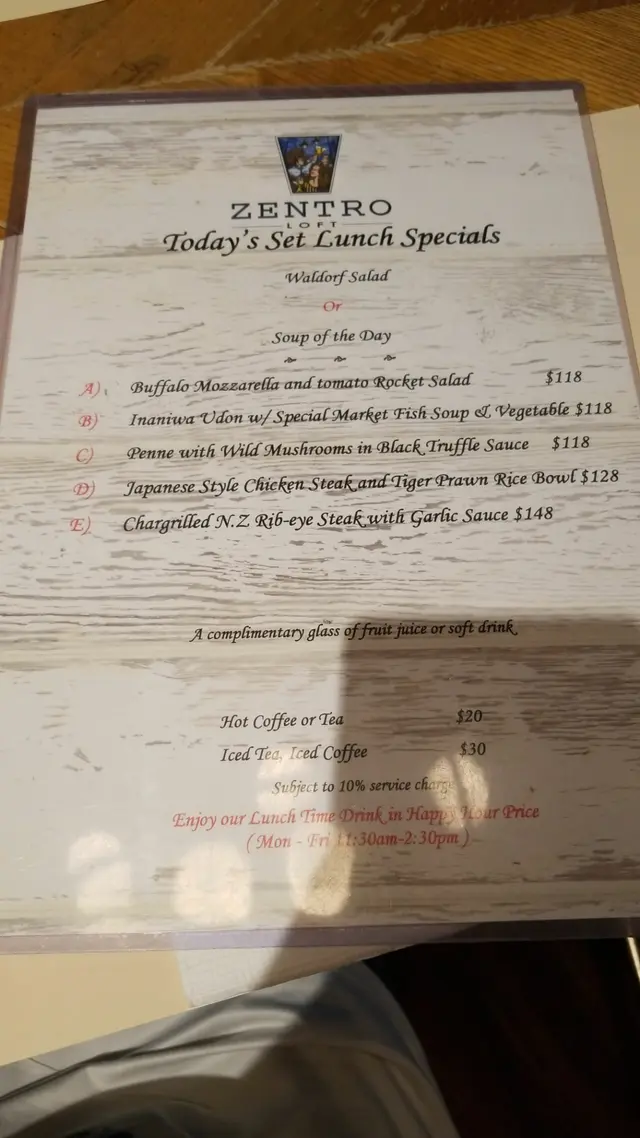 ZENTRO
LOFT
Today's Set Lunch Specials
Waldorf Salad
Or
Soup of the Day
A) Buffalo Mozzarella and tomato Rocket Salad $118
B) Inaniwa Udon w/ Special Market Fish Soup & Vegetable $118
C) Penne with Wild Mushrooms in Black Truffle Sauce $118
D) Japanese Style Chicken Steak and Tiger Prawn Rice Bowl $128
E) Chargrilled N.Z Rib-eye Steak with Garlic Sauce $148
A complimentary glass of fruit juice or soft drink
Hot Coffee or Tea $20
Iced Tea, Iced Coffee $30
Subject to 10% service charge
Enjoy our Lunch Time Drink in Happy Hour Price
( Mon - Fri 11:30am-2:30pm )